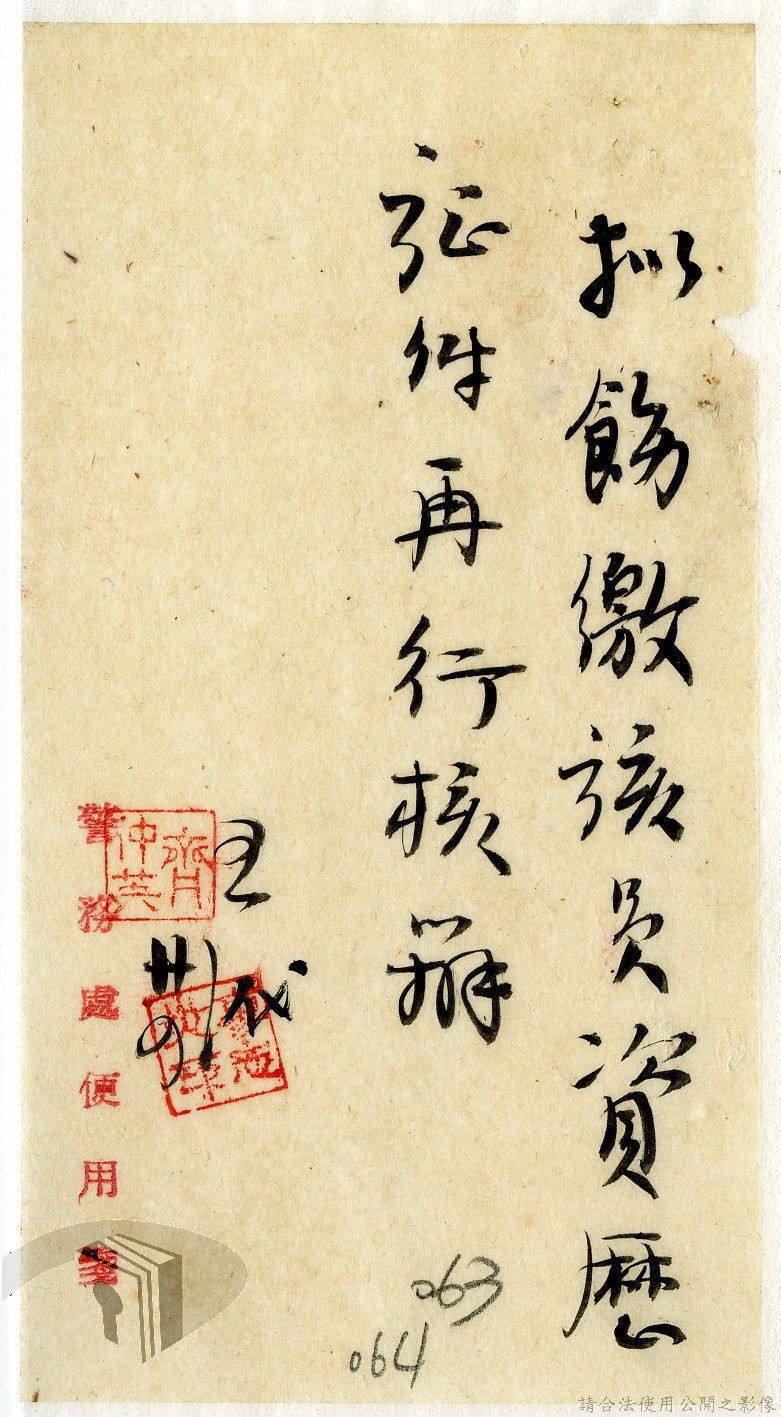 拟飭繳該員資歷
証件再行核辦
代
齊仲英
警務處便用箋
063
064
請合法使用公開之影像